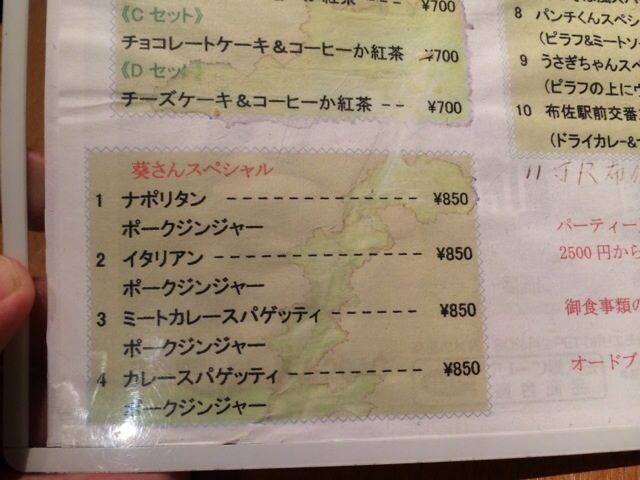 ¥700
《Cセット》
チョコレートケーキ＆コーヒーか紅茶 ¥700
《Dセット》
チーズケーキ＆コーヒーか紅茶 -- ¥700
葵さんスペシャル
1 ナポリタン ---------------- ¥850
ポークジンジャー
2 イタリアン ---------------- ¥850
ポークジンジャー
3 ミートカレースパゲッティ ------ ¥850
ポークジンジャー
4 カレースパゲッティ --------- ¥850
ポークジンジャー
8 パンチくんスペシ
(ピラフ&ミートソー
9 うさぎちゃんスペ
(ピラフの上に
10 布佐駅前交番
(ドライカレー&
11 JR布
パーティー
2500円から
御食事類の
オードブ